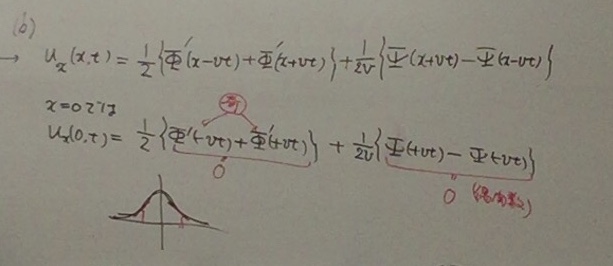 (b)
→ Uₓ(x,t) = 1/2 {Φ̄′(x-vt)+Φ̄′(x+vt)} + 1/2v {Ψ̄(x+vt)-Ψ̄(x-vt)}
x=0では
奇
Uₓ(0,t) = 1/2 {Φ̄′(-vt)+Φ̄′(+vt)} + 1/2v {Ψ̄(+vt)-Ψ̄(-vt)}
0 0 (偶関数)